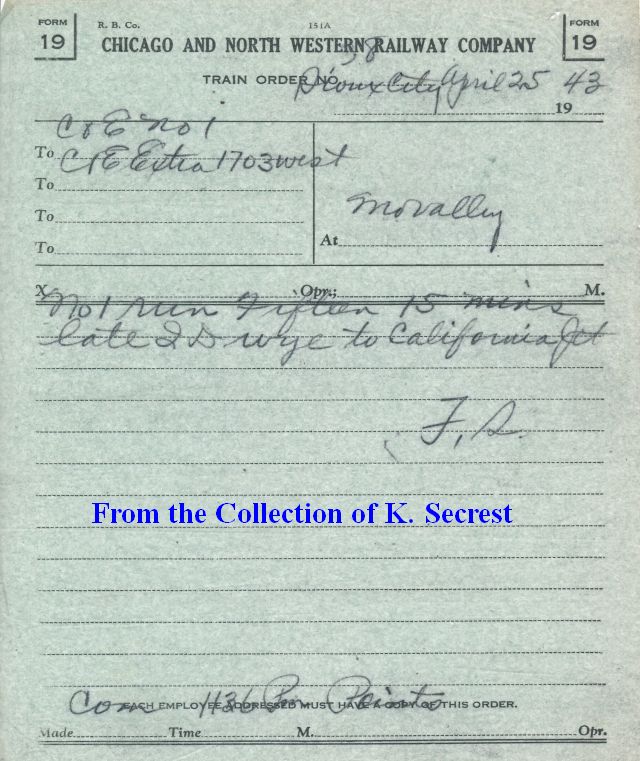 FORM 19 R. B. Co. 151A FORM 19
CHICAGO AND NORTH WESTERN RAILWAY COMPANY
TRAIN ORDER NO. 58
Sioux City April 25 43
19
C&E No 1
To C&E Extra 1703 west
To
To
To
Movalley
At
X Opr.; M.
No 1 run Fifteen 15 mins
late I D wye to California Jct
F, S.
From the Collection of K. Secrest
Com 1136 Pm
EACH EMPLOYEE ADDRESSED MUST HAVE A COPY OF THIS ORDER.
Made Time M. Opr.